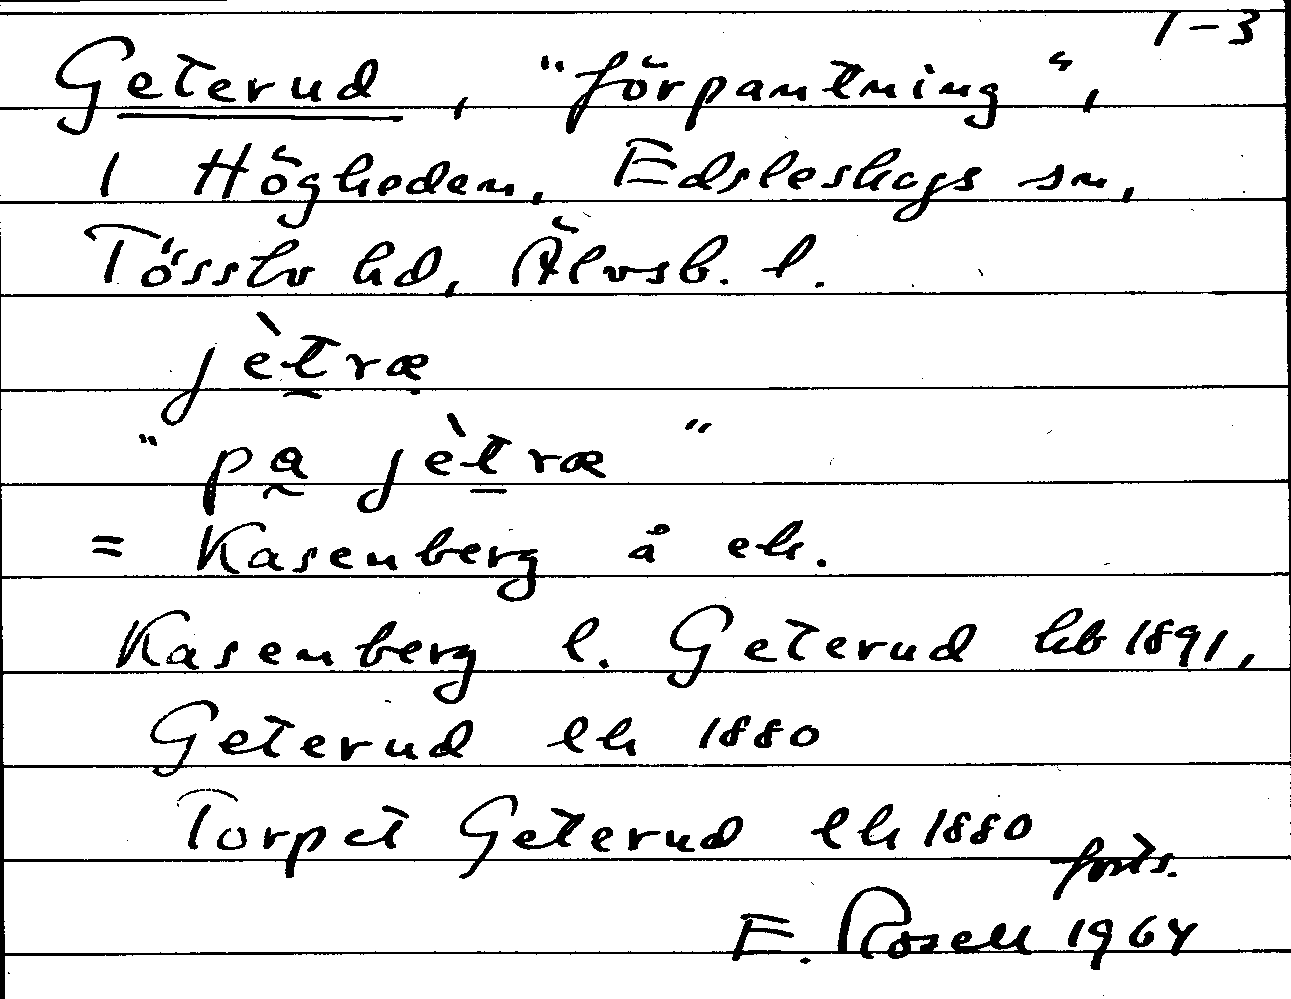 1-3
Geterud, "förpantning",
i Högheden, Edsleskogs sn,
Tössbo hd, Älvsb. l.
jètræ
"pa jètræ"
= Kasenberg å ek.
Kasenberg l. Geterud hb 1891,
Geterud lh 1880
Torpet Geterud lh 1880
forts.
E. Rosell 1964